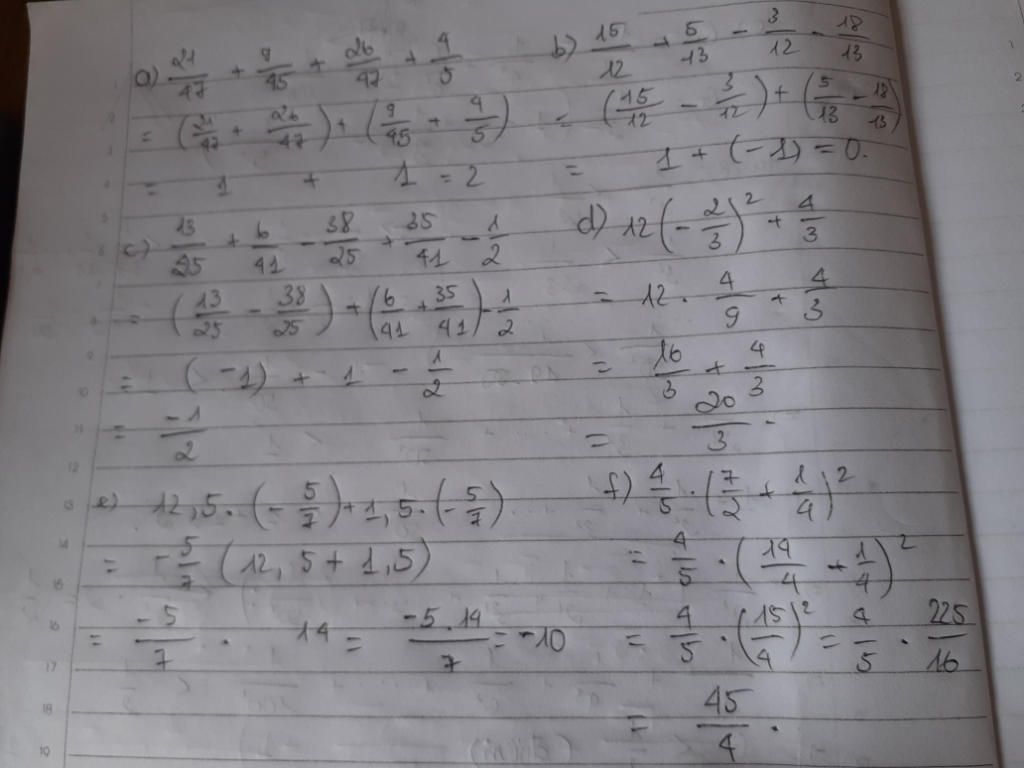 a) 21/47 + 9/45 + 26/47 + 4/5
= (21/47 + 26/47) + (9/45 + 4/5)
= 1 + 1 = 2
b) 15/12 + 5/13 - 3/12 - 18/13
= (15/12 - 3/12) + (5/13 - 18/13)
= 1 + (-1) = 0.
c) 13/25 + 6/41 - 38/25 + 35/41 - 1/2
= (13/25 - 38/25) + (6/41 + 35/41) - 1/2
= (-1) + 1 - 1/2
= -1/2
d) 12(-2/3)² + 4/3
= 12 . 4/9 + 4/3
= 16/3 + 4/3
= 20/3 .
e) 12,5 . (-5/7) + 1,5 . (-5/7)
= -5/7 (12,5 + 1,5)
= -5/7 . 14 = -5.14/7 = -10
f) 4/5 . (7/2 + 1/4)²
= 4/5 . (14/4 + 1/4)²
= 4/5 . (15/4)² = 4/5 . 225/16
= 45/4 .